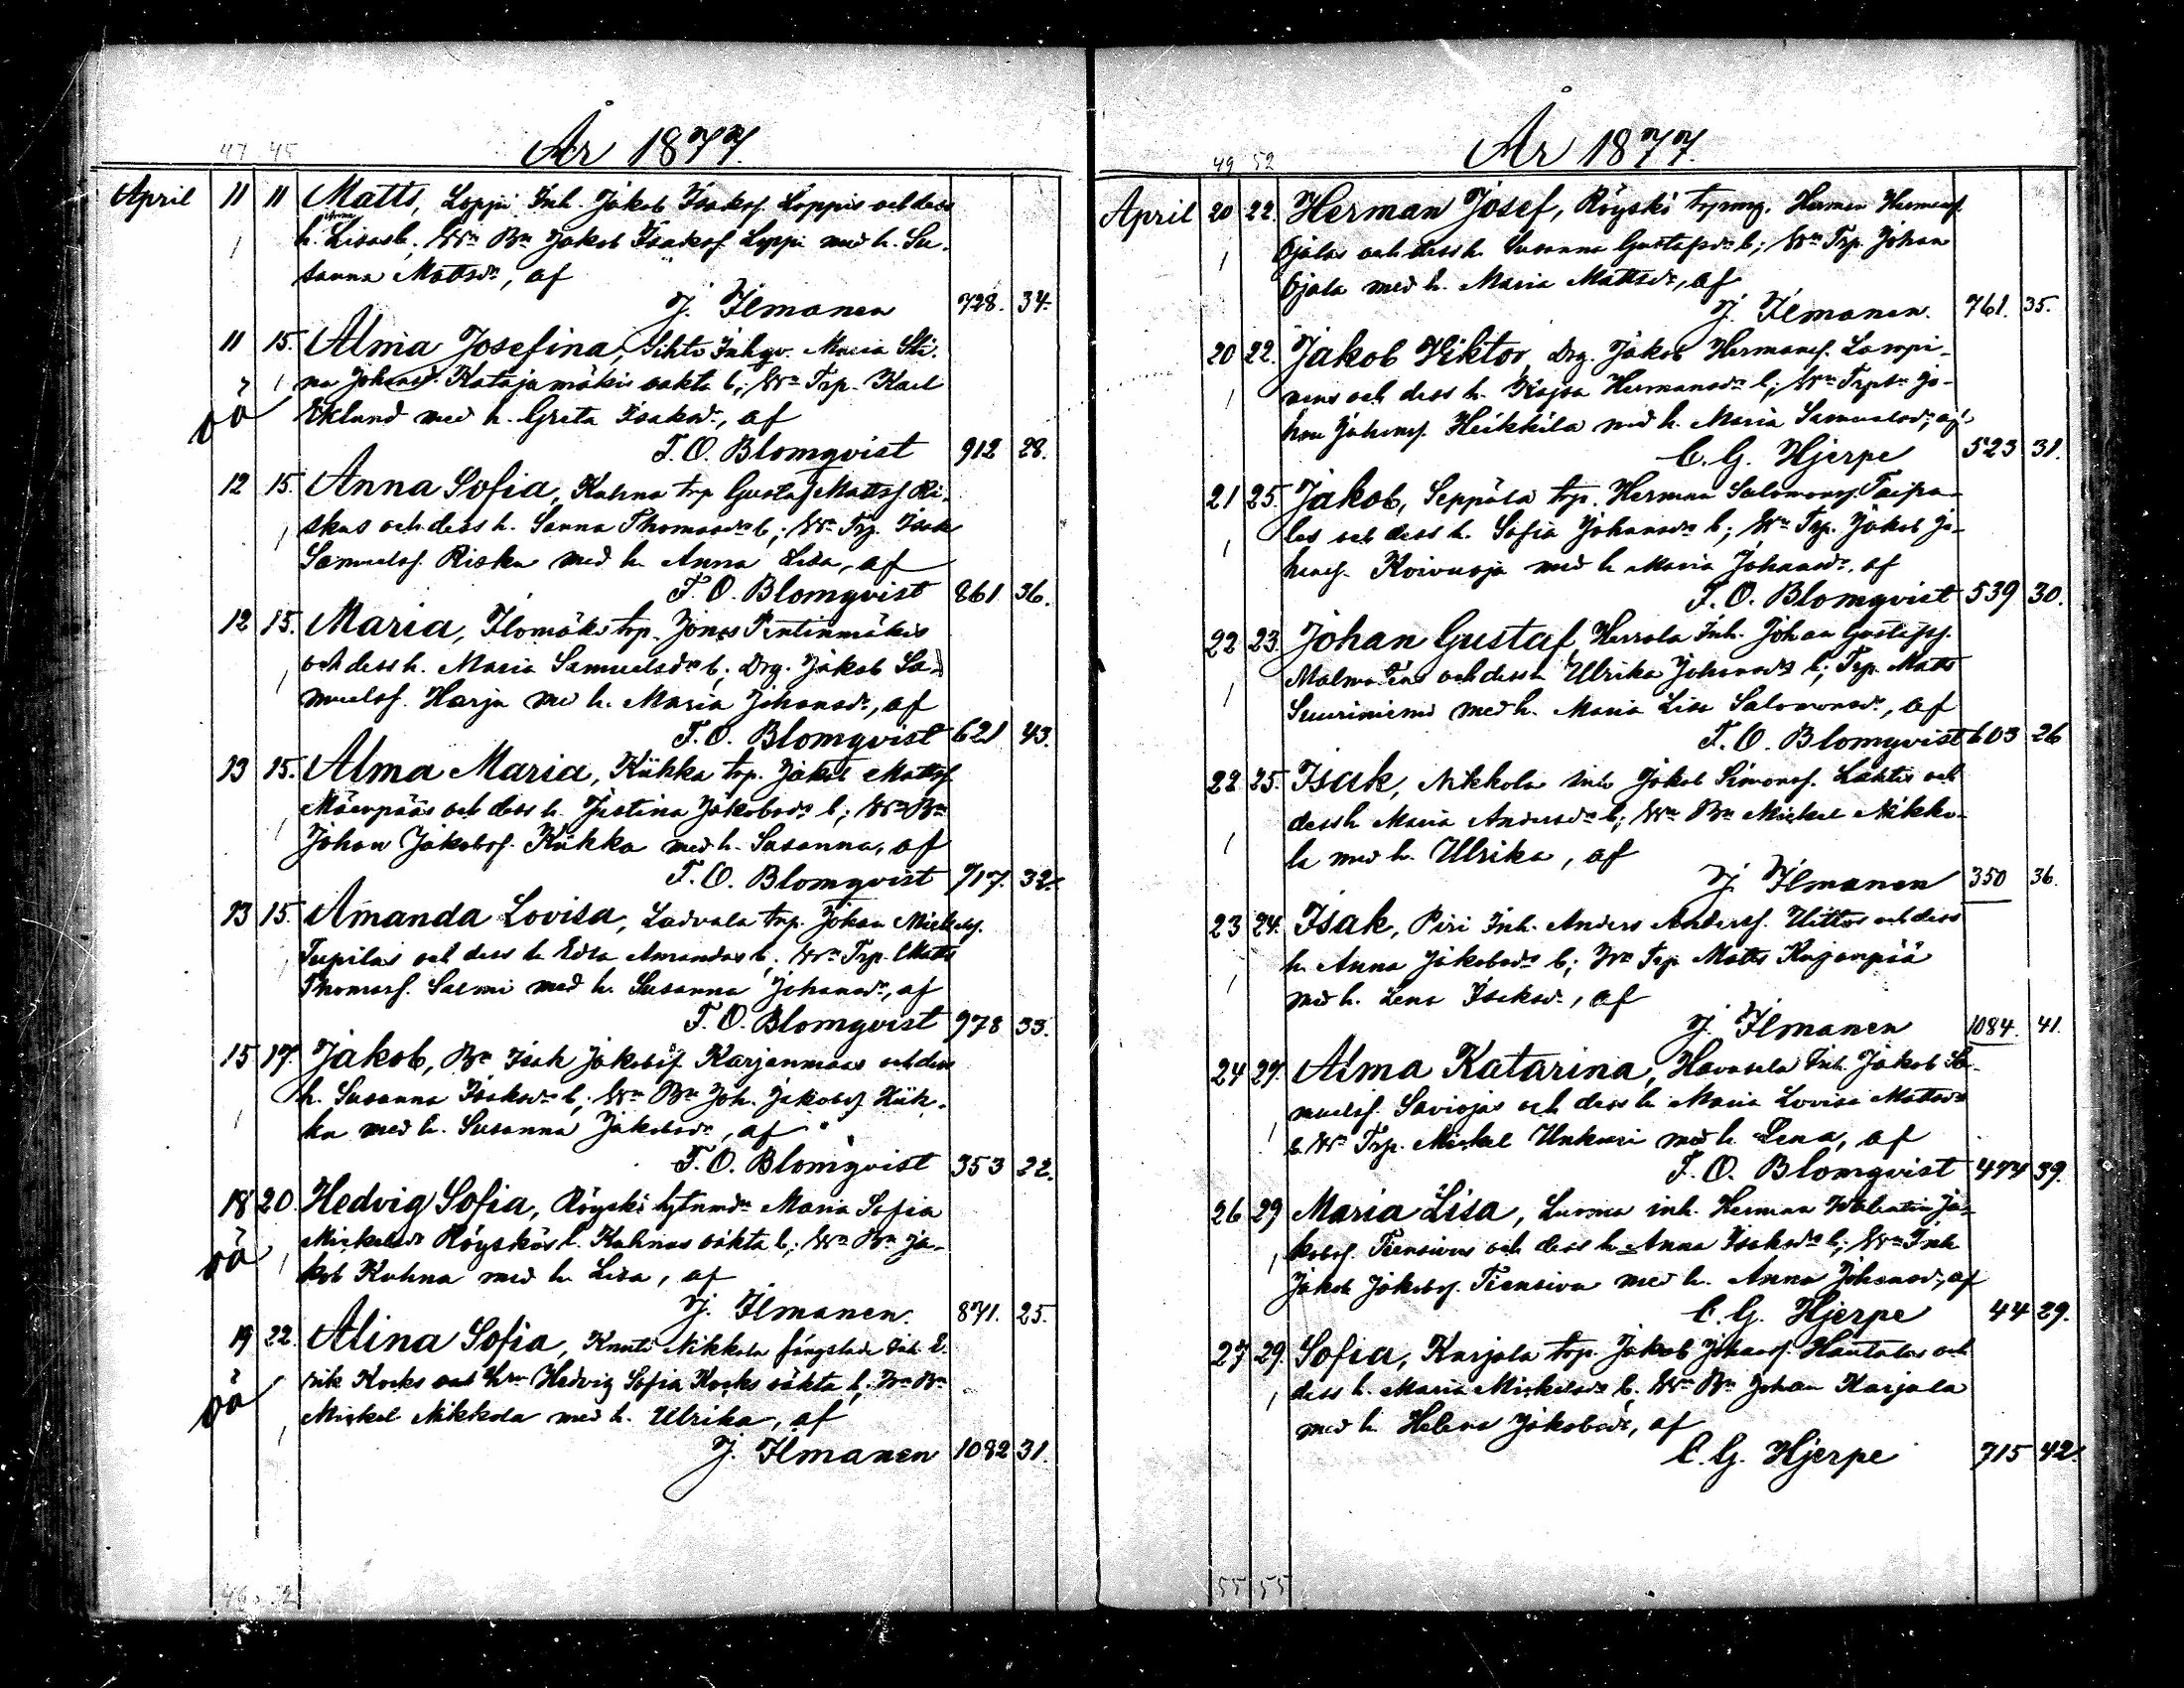 47 45
År 1877.
April 11 11 Matts, Loppi Inh. Jakob Isaksf. Loppis och dess
h. Lisas b., Wn Bn Jakob Isaksf. Loppi med h. Su-
sanna Mattsdr, af
J. Ilmonen 728. 34.
11 15. Alma Josefina, Sihto Inhys. Maria Sti-
na Johansd. Katajamäkis oäkta b; Wn Trp. Karl
oä Eklund med h. Greta Isaksdr, af
F. O. Blomqvist 912 28.
12 15. Anna Sofia, Kuhna trp Gustaf Mattsf. Ri-
skus och dess h. Sanna Thomasdrs b; Wn Trp. Isak
Samuelsf. Risku med h. Anna Lisa, af
F. O. Blomqvist 861 36.
12 15. Maria, Ilomäki trp. Jonas Pentinmäkis
och dess h. Maria Samuelsdrs b; Drg. Jakob Sa-
muelsf. Harju med h. Maria Johansdr, af
F. O. Blomqvist 621 43.
13 15. Alma Maria, Kiikka trp. Jakob Mattsf.
Mäenpääs och dess h. Justina Jakobsdrs b; Wn Bn
Johan Jakobsf. Kiikka med h. Susanna, af
F. O. Blomqvist 717. 32.
13 15. Amanda Lovisa, Ladvala trp. Johan Mickelsf.
Tupilas och dess h. Edla Amandas b. Wn Trp. Matts
Thomasf. Salmi med h. Susanna Johansdr, af
F. O. Blomqvist 978 33.
15 17. Jakob, Bn Isak Jakobsf. Karjanmaas och dess
h. Susanna Isaksdrs b, Wn Bn Joh. Jakobsf. Kiik-
ka med h. Susanna Jakobsdr, af
F. O. Blomqvist 353 22.
18 20. Hedvig Sofia, Röyskö Maria Sofia
Mickelsdr Röyskös l. Kuhnas oäkta b; Wn Bn Ja-
oä kob Kuhna med h. Lisa, af
J. Ilmonen. 871. 25.
19 22. Alina Sofia, Knuts Nikkola fängslade Inh. E-
rik Korks och Hedvig Sofia Korks oäkta b, Wn Bn
oä Mickel Nikkola med h. Ulrika, af
J. Ilmonen 1082 31.
49 52
År 1877.
April 20 22. Herman Josef, Röyskö Herman Hermansf.
Ojalas och dess h. Susanna Gustafsdrs b; Wn Trp. Johan
Ojala med h. Maria Mattsdr, af
J. Ilmonen. 761. 35.
20 22. Jakob Viktor, Drg. Jakob Hermansf. Lampi-
nens och dess h. Kajsa Hermansdrs b; Wn Jo-
han Johansf. Heikkilä med h. Maria Samuelsdr, af
C. G. Hjerpe 523 31.
21 25. Jakob, Seppälä trp. Herman Salomonsf. Taipa-
les och dess h. Sofia Johansdrs b; Wn Trp. Jakob Jo-
hansf. Koivuoja med h. Maria Johansdr, af
F. O. Blomqvist 539 30.
22 23. Johan Gustaf, Herrala Inh. Johan Gustafsf.
Malmstens och dess h. Ulrika Johansdrs b; Trp. Matts
Suuriniemi med h. Maria Lisa Salomonsdr, af
F. O. Blomqvist 603 26
22 25. Isak, Nikkola Inh Jakob Simonsf. Lahtis och
dess h Maria Andersdrs b; Wn Bn Mickel Nikko-
la med h. Ulrika, af
J. Ilmonen 350 36.
23 24. Isak, Piri Inh. Anders Andersf. Hittos och dess
h. Anna Jakobsdrs b; Wn Trp Matts Kujanpää
med h. Lena Isaksdr, af
J. Ilmonen 1084. 41.
24 27. Alma Katarina, Havusela Inh. Jakob Sa-
muelsf. Saviojas och dess h. Maria Lovisa Mattsdrs
b. Wn Trp. Mickel Unkuri med h. Lena, af
F. O. Blomqvist 474 39.
26 29 Maria Lisa, Luoma inh. Herman Walentin Ja-
kobsf. Tiensivus och dess h. Anna Isaksdrs b; Wn Inh
Jakob Jakobsf. Tiensivu med h. Anna Johansdr, af
C. G. Hjerpe 44 29.
27 29. Sofia, Karjala trp. Jakob Johansf. Hautalas och
dess h. Maria Mickelsdrs b. Wn Bn Johan Karjala
med h. Helena Jakobsdr, af
C. G. Hjerpe 715 42.
55 55